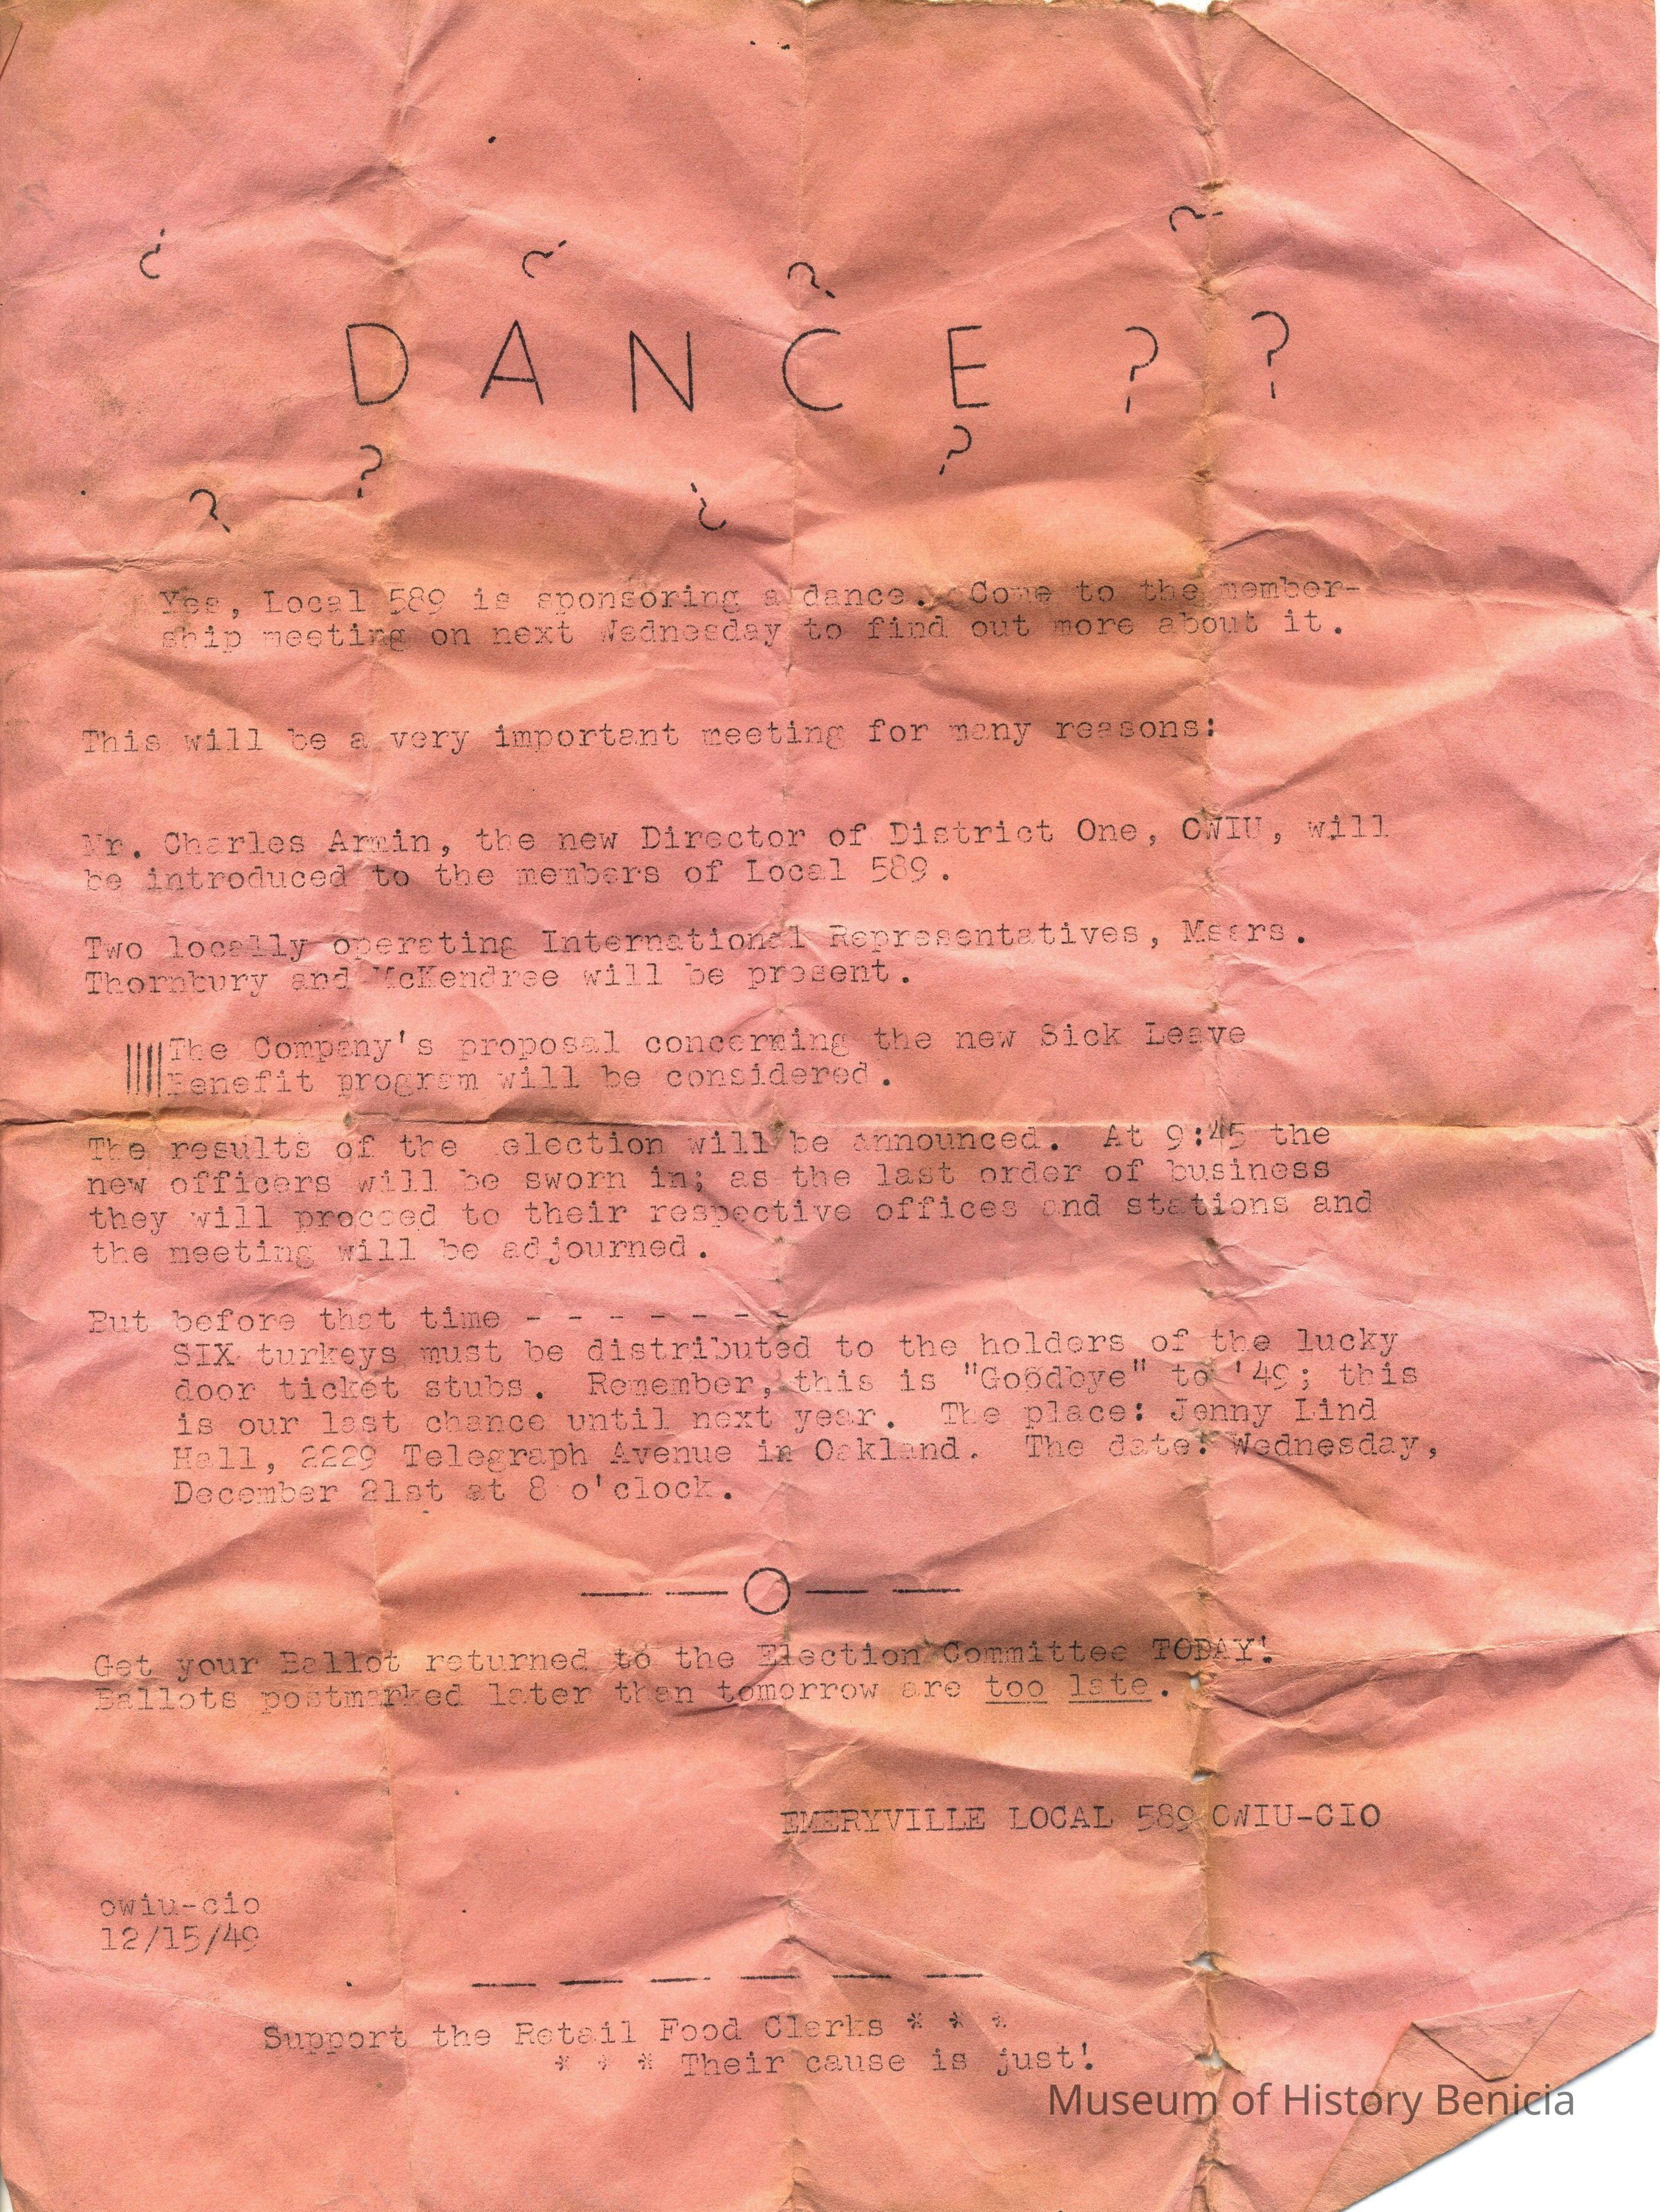 ? ? ? ?
D A N C E ? ?
? ? ? ?
Yes, Local 589 is sponsoring a dance. Come to the member-
ship meeting on next Wednesday to find out more about it.
This will be a very important meeting for many reasons:
Mr. Charles Armin, the new Director of District One, OWIU, will
be introduced to the members of Local 589.
Two locally operating International Representatives, Messrs.
Thornbury and McKendree will be present.
The Company's proposal concerning the new Sick Leave
Benefit program will be considered.
The results of the election will be announced. At 9:45 the
new officers will be sworn in; as the last order of business
they will proceed to their respective offices and stations and
the meeting will be adjourned.
But before that time - - - - - - -
SIX turkeys must be distributed to the holders of the lucky
door ticket stubs. Remember, this is "Goodbye" to '49; this
is our last chance until next year. The place: Jenny Lind
Hall, 2229 Telegraph Avenue in Oakland. The date: Wednesday,
December 21st at 8 o'clock.
Get your Ballot returned to the Election Committee TODAY!
Ballots postmarked later than tomorrow are too late.
EMERYVILLE LOCAL 589 OWIU-CIO
owiu-cio
12/15/49
Support the Retail Food Clerks * * *
* * * Their cause is just!
Museum of History Benicia